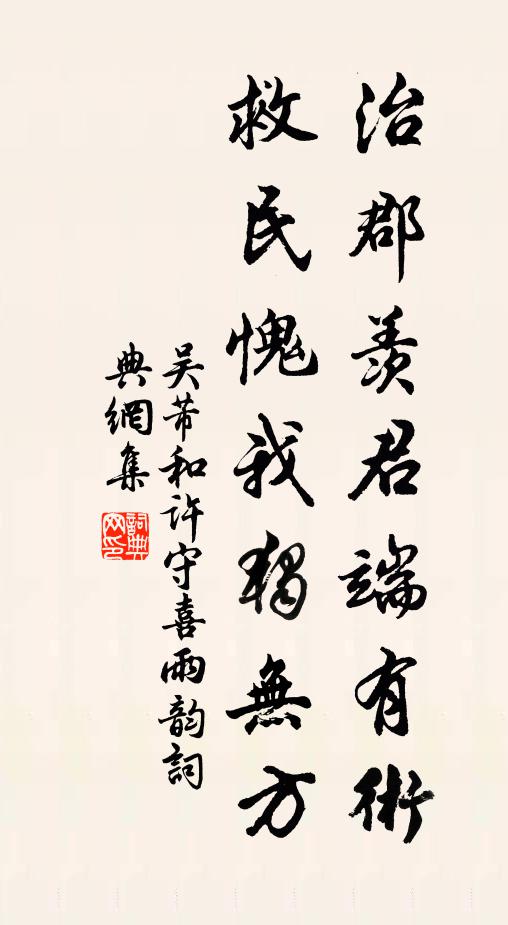 治郡羨君端有術
救民愧我獨無方
吴芾和許守喜雨韵詞
典網集
詞典網印